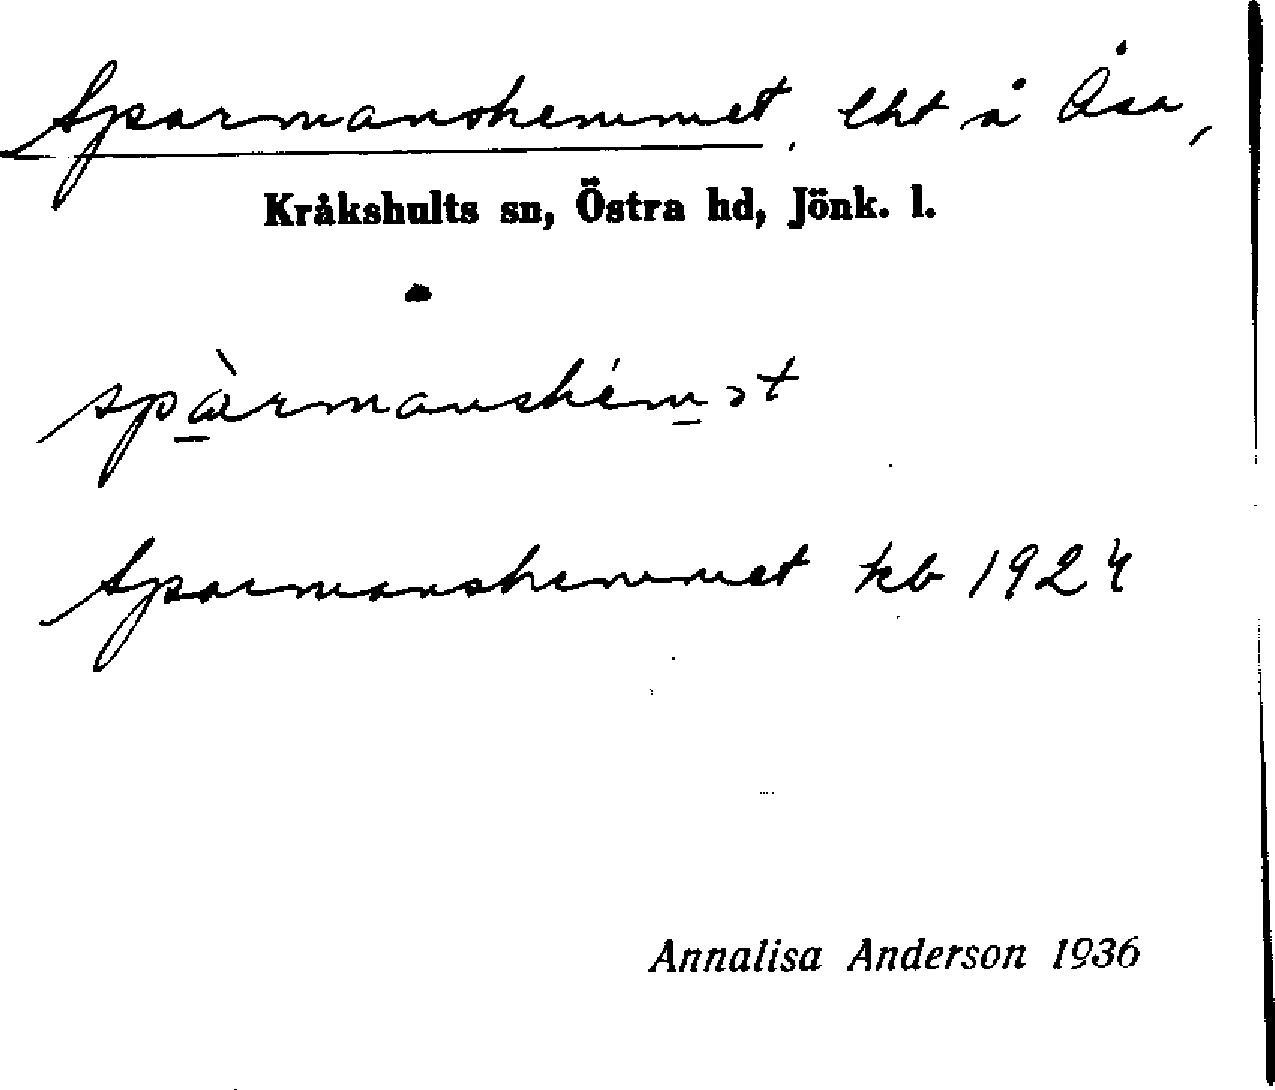 Sparmanshemmet, lht å Åsa,
Kråkshults sn, Östra hd, Jönk. l.
spàrmanshém̲ɔt
Sparmanshemmet kb 1924
Annalisa Anderson 1936